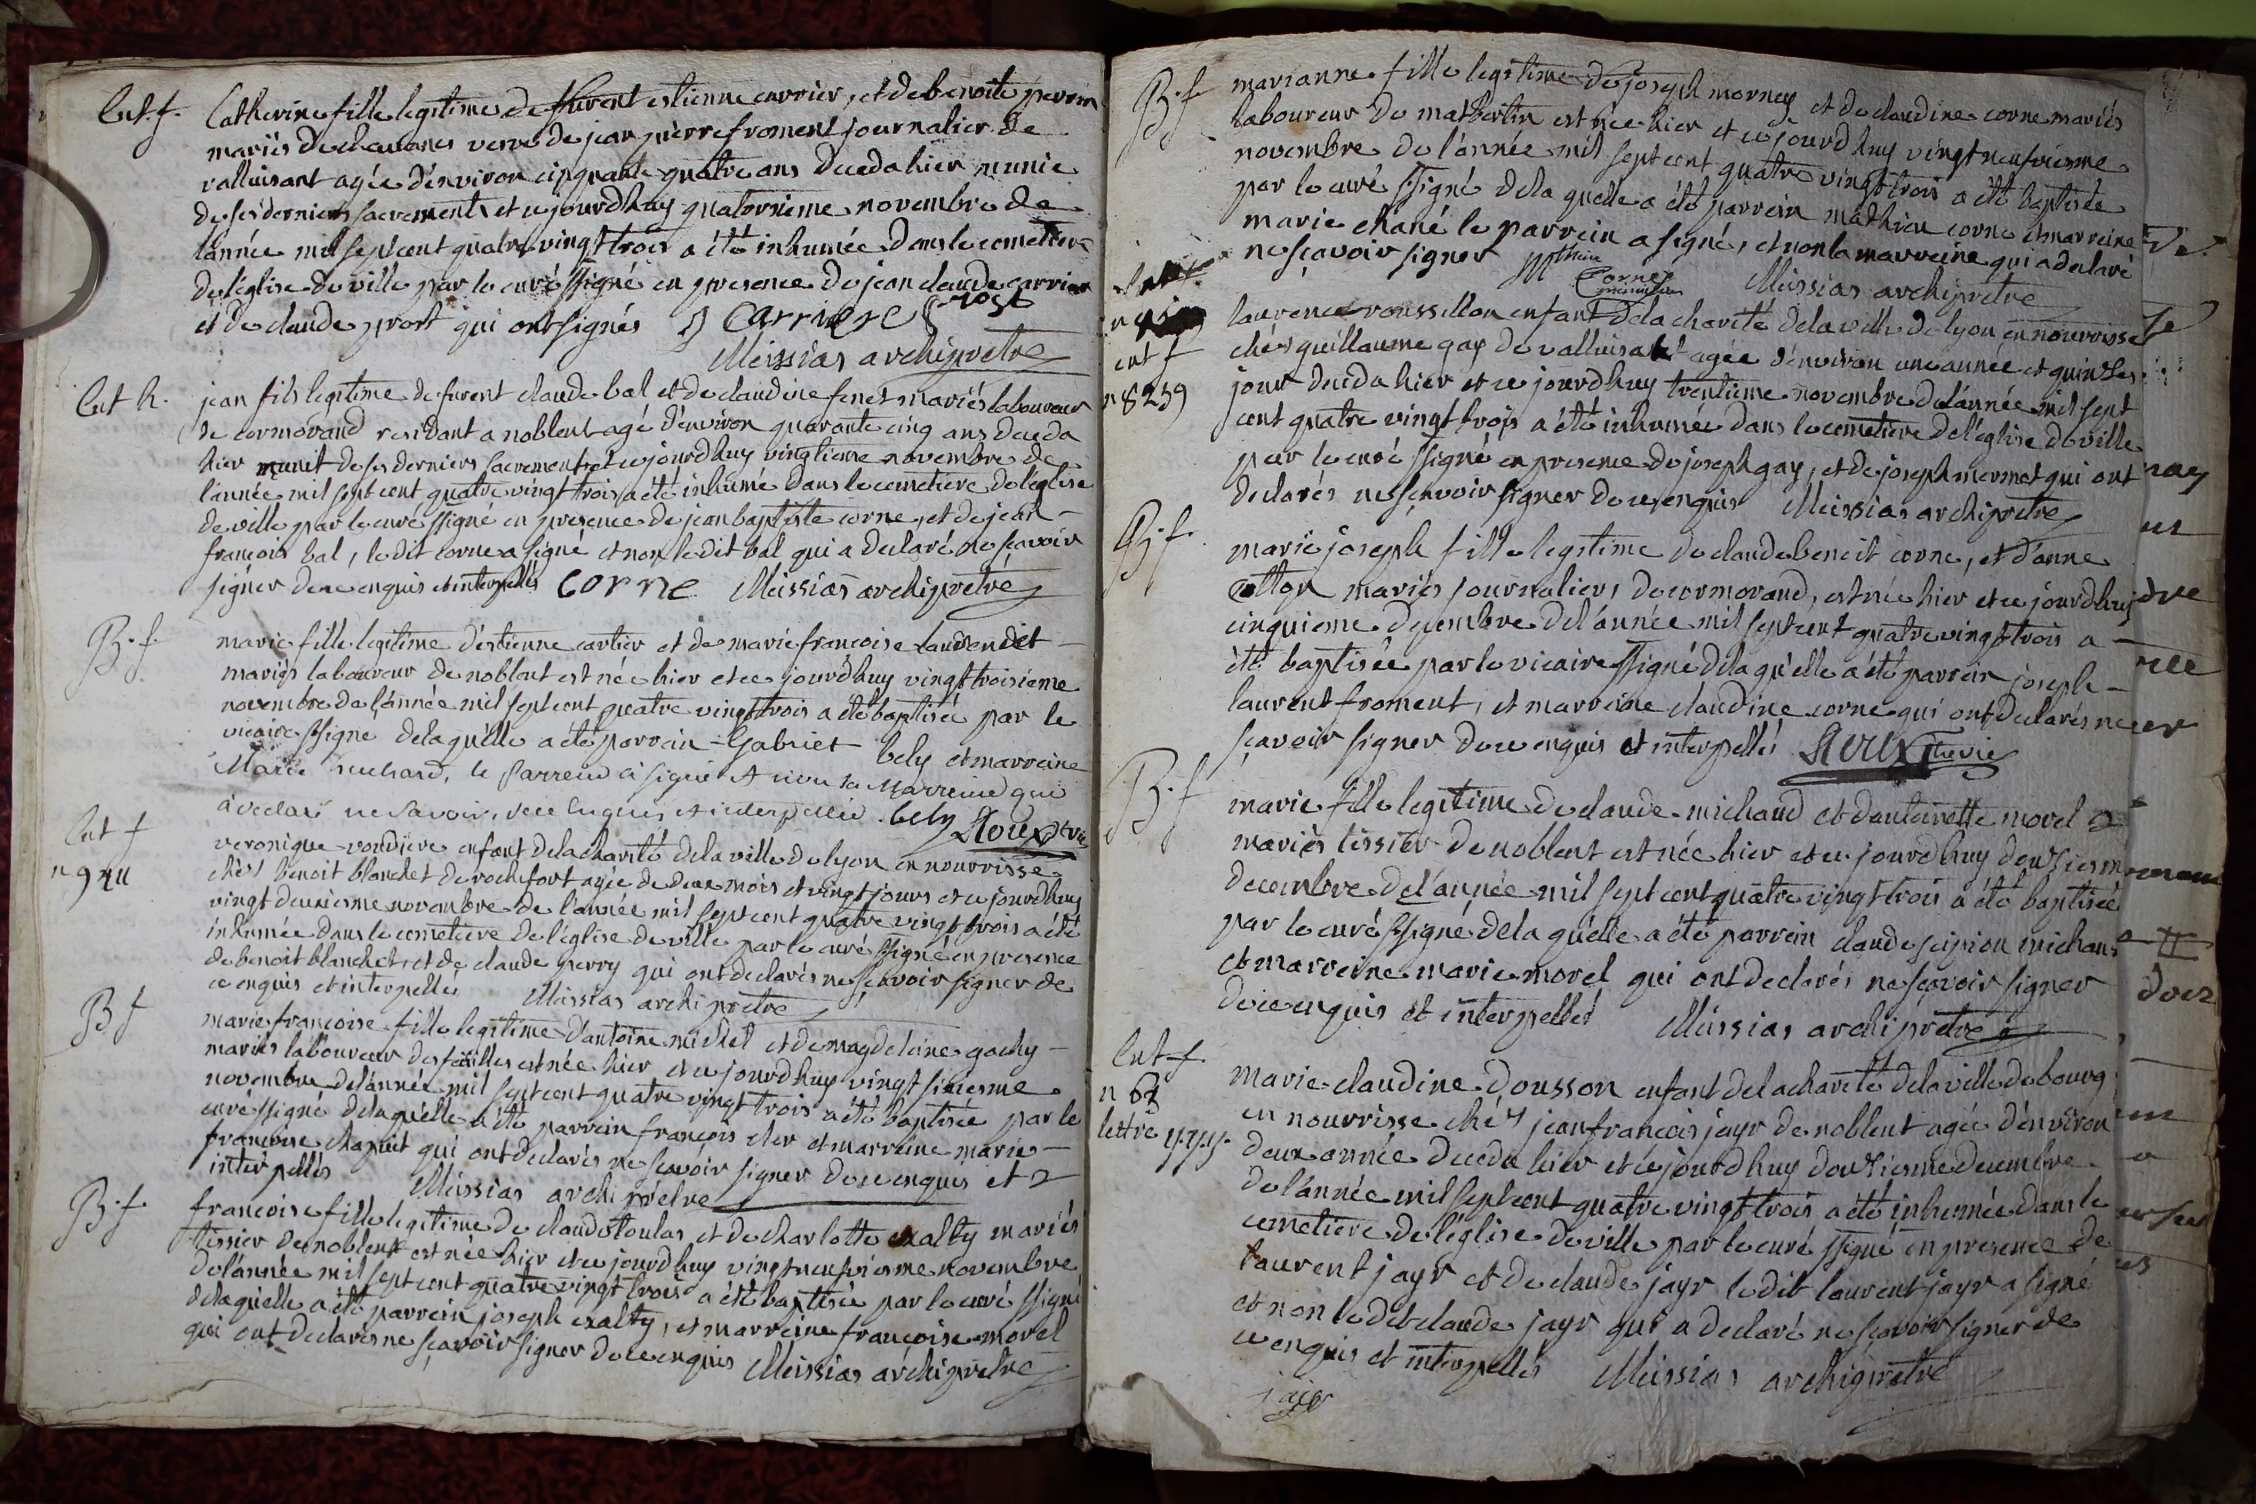 Ent. f. Catherine fille legitime de furent estienne carrier, et de benoite perrin
mariés de chavanes verve de jean pierre froment journalier de
valluisant agée d'environ cinquante quatre ans deceda hier munie
de ses derniers sacrements et ce jourd'huy quatorsieme novembre de
l'année mil sept cent quatre vingt trois a été inhumée dans le cemetiere
de l'eglise de ville par le curé ssigné en presence de jean claude carrier
et de claude prost qui ont signés J Carriere C prost
Meissias archiprêtre
Ent h. jean fils legitime de furent claude bal et de claudine fenet mariés laboureur
de cormorand residant a noblent agé d'environ quarante cinq ans deceda
hier munit de ses derniers sacrements et ce jourd'huy vingtieme novembre de
l'année mil sept cent quatre vingt trois a été inhumé dans le cemetiere de l'eglise
de ville par le curé ssigné en presence de jean baptiste corne, et de jean
françois bal, le dit corne a signé et non le dit bal qui a declaré ne sçavoir
signer de ce enquis et interpellés corne Meissias archiprêtré
B. f. marie fille legitime d'estienne cartier et de marie françoise
mariés laboureur de noblent est née hier et ce jourd'huy vingt troisieme
novembre de l'année mil sept cent quatre vingt trois a été baptisée par le
vicaire ssigné de laquelle a été parrein Gabriel bely et marreine
Marie michard, le Parrein a signé et non la Marreine qui
a declaré ne savoir, de ce Enquis et interpellée. bely Roux vic
Ent f n 9 veronique enfant de la charité de la ville de lyon en nourrisse
chés benoit blanchet de rochefort agée de deux mois et vingt jours et ce jourd'huy
vingt deuxiesme novembre de l'année mil sept cent quatre vingt trois a été
inhumée dans le cemetiere de l'eglise de ville par le curé ssigné en presence
de benoit blanchet, et de claude perry qui ont declarés ne sçavoir signer de
ce enquis et interpellés Meissias archiprêtre
B f marie françoise fille legitime d'antoine michel et de magdeleine gachy
mariés laboureur des feuilles est née hier et ce jourd'huy vingt sixiesme
novembre de l'année mil sept cent quatre vingt trois a été baptisée par le
curé ssigné de laquelle a été parrein françois cler et marreine marie
françoise chapuit qui ont declarés ne sçavoir signer de ce enquis et
interpellés Meissias archiprêtre
B. f. françoise fille legitime de claude toulas, et de charlotte exalty mariés
tissier de noblent est née hier et ce jourd'huy vingt neufviesme novembre
de l'année mil sept cent quatre vingt trois a été baptisée par le curé ssigné
de laquelle a été parrein joseph exalty, et marreine françoise morel
qui ont declarés ne sçavoir signer de ce enquis Meissias archiprêtre
B. f marianne fille legitime de joseph mornay et de claudine corne mariés
laboureur de mathertin est née hier et ce jourd'huy vingt neufviesme
novembre de l'année mil sept cent quatre vingt trois a été baptisée
par le curé ssigné de la quelle a été parrein mathieu corne et marreine
marie chané le parrein a signé, et non la marreine qui a declaré
ne sçavoir signer Mthieu Corne Meissias archiprêtre
ent f n 8239 laurence roussillon enfant de la charité de la ville de lyon en nourrisse
chés guillaume gay de valluisant agée d'environ une année et quinse
jour deceda hier et ce jourd'huy trentieme novembre de l'année mil sept
cent quatre vingt trois a été inhumée dans le cemetiere de l'eglise de ville
par le curé ssigné en presence de joseph gay, et de joseph mermet qui ont
declarés ne sçavoir signer de ce enquis Meissias archiprêtre
B. f. marie joseph fille legitime de claude benoit corne, et d'anne
cotton mariés journaliers de cormorand, est née hier et ce jourd'huy
cinquieme decembre de l'année mil sept cent quatre vingt trois a
été baptisée par le vicaire ssigné de la quelle a été parrein joseph
laurent froment, et marreine claudine corne qui ont declarés ne
sçavoir signer de ce enquis et interpellés Roux vic
B. f marie fille legitime de claude michaud et d'antoinette morel
mariés tissier de noblent est née hier et ce jourd'huy dousiesme
decembre de l'année mil sept cent quatre vingt trois a été baptisée
par le curé ssigné, de la quelle a été parrein claude scipion michaud
et marreine marie morel qui ont declarés ne sçavoir signer
de ce enquis et interpellés Meissias archiprêtre
Ent f. n 63 lettre yyy. marie claudine dousson enfant de la charité de la ville de bourg
en nourrisse chés jean françois jayr de noblent agée d'environ
deux année deceda hier et ce jourd'huy dousiesme decembre
de l'année mil sept cent quatre vingt trois a été inhumée dans le
cemetiere de l'eglise de ville par le curé ssigné en presence de
laurent jayr et de claude jayr le dit laurent jayr a signé
et non le dit claude jayr qui a declaré ne sçavoir signer de
ce enquis et interpellés Meissias archiprêtré
jair